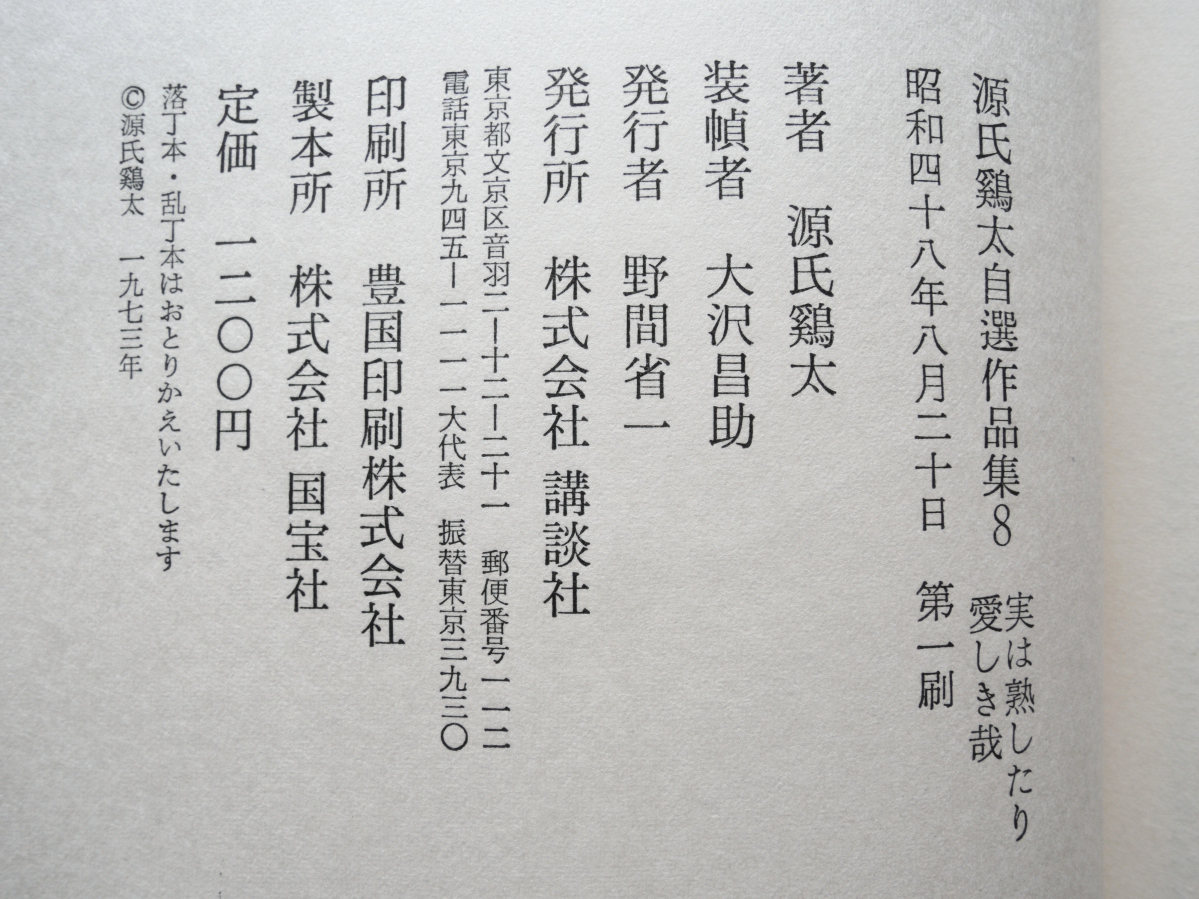 源氏鶏太自選作品集8
実は熟したり
愛しき哉
昭和四十八年八月二十日　第一刷
著者　源氏鶏太
装幀者　大沢昌助
発行者　野間省一
発行所　株式会社 講談社
東京都文京区音羽二―十二―二十一　郵便番号一一二
電話東京九四五―一一一一大代表　振替東京三九三〇
印刷所　豊国印刷株式会社
製本所　株式会社 国宝社
定価　一二〇〇円
落丁本・乱丁本はおとりかえいたします
©源氏鶏太　一九七三年